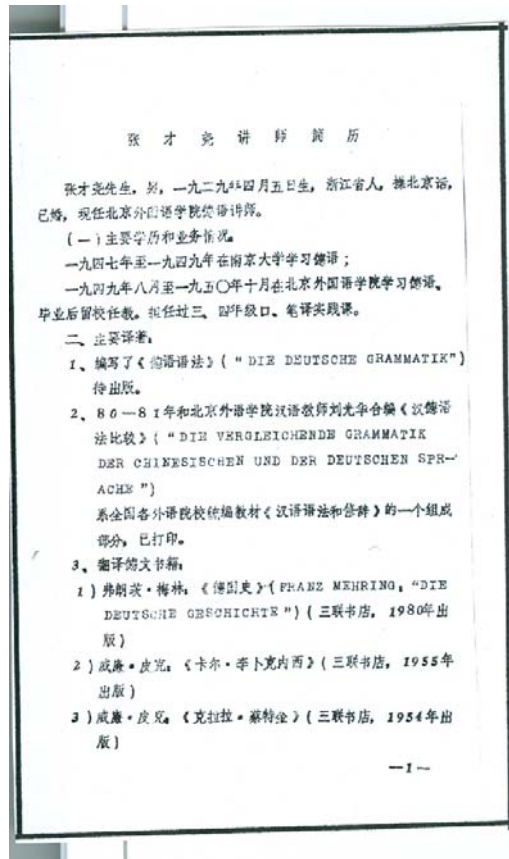 张才尧讲师简历
张才尧先生，男，一九二九年四月五日生，浙江省人，操北京话，
已婚，现任北京外国语学院德语讲师。
（一）主要学历和业务情况。
一九四七年至一九四九年在南京大学学习德语；
一九四九年八月至一九五〇年十月在北京外国语学院学习德语。
毕业后留校任教。担任过三、四年级口、笔译实践课。
二、主要译著：
1、编写了《德语语法》（“DIE DEUTSCHE GRAMMATIK”）
待出版。
2、80—81年和北京外语学院汉语教师刘光华合编《汉德语
法比较》（“DIE VERGLEICHENDE GRAMMATIK
DER CHINESISCHEN UND DER DEUTSCHEN SPR-
ACHE”）
系全国各外语院校统编教材《汉语语法和修辞》的一个组成
部分，已打印。
3、翻译德文书籍：
1）弗朗茨·梅林：《德国史》（FRANZ MEHRING：“DIE
DEUTSCHE GESCHICHTE”）（三联书店，1980年出
版）
2）威廉·皮克：《卡尔·李卜克内西》（三联书店，1955年
出版）
3）威廉·皮克：《克拉拉·蔡特金》（三联书店，1954年出
版）
—1—